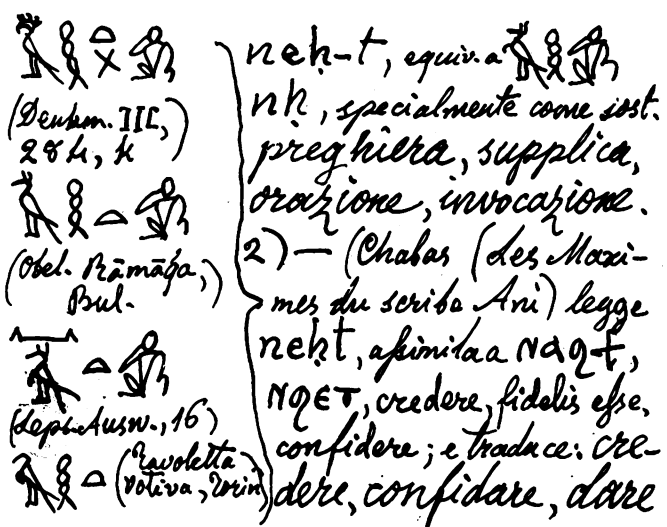 (Denkm. III,
284, k)
(Obel.
Bul.
(Leps. Ausw., 16)
(Tavoletta
votiva, Torin)
neḥ-t, equiv. a
nḥ, specialmente come sost.
preghiera, supplica,
orazione, invocazione.
2) — (Chabas (Les Maxi-
mes du scribe Ani) legge
neḥt, aſsimila a ⲛⲁϩϯ,
ⲛϩⲉⲧ, credere, fidelis eſse,
confidere; e traduce: cre-
dere, confidare, dare